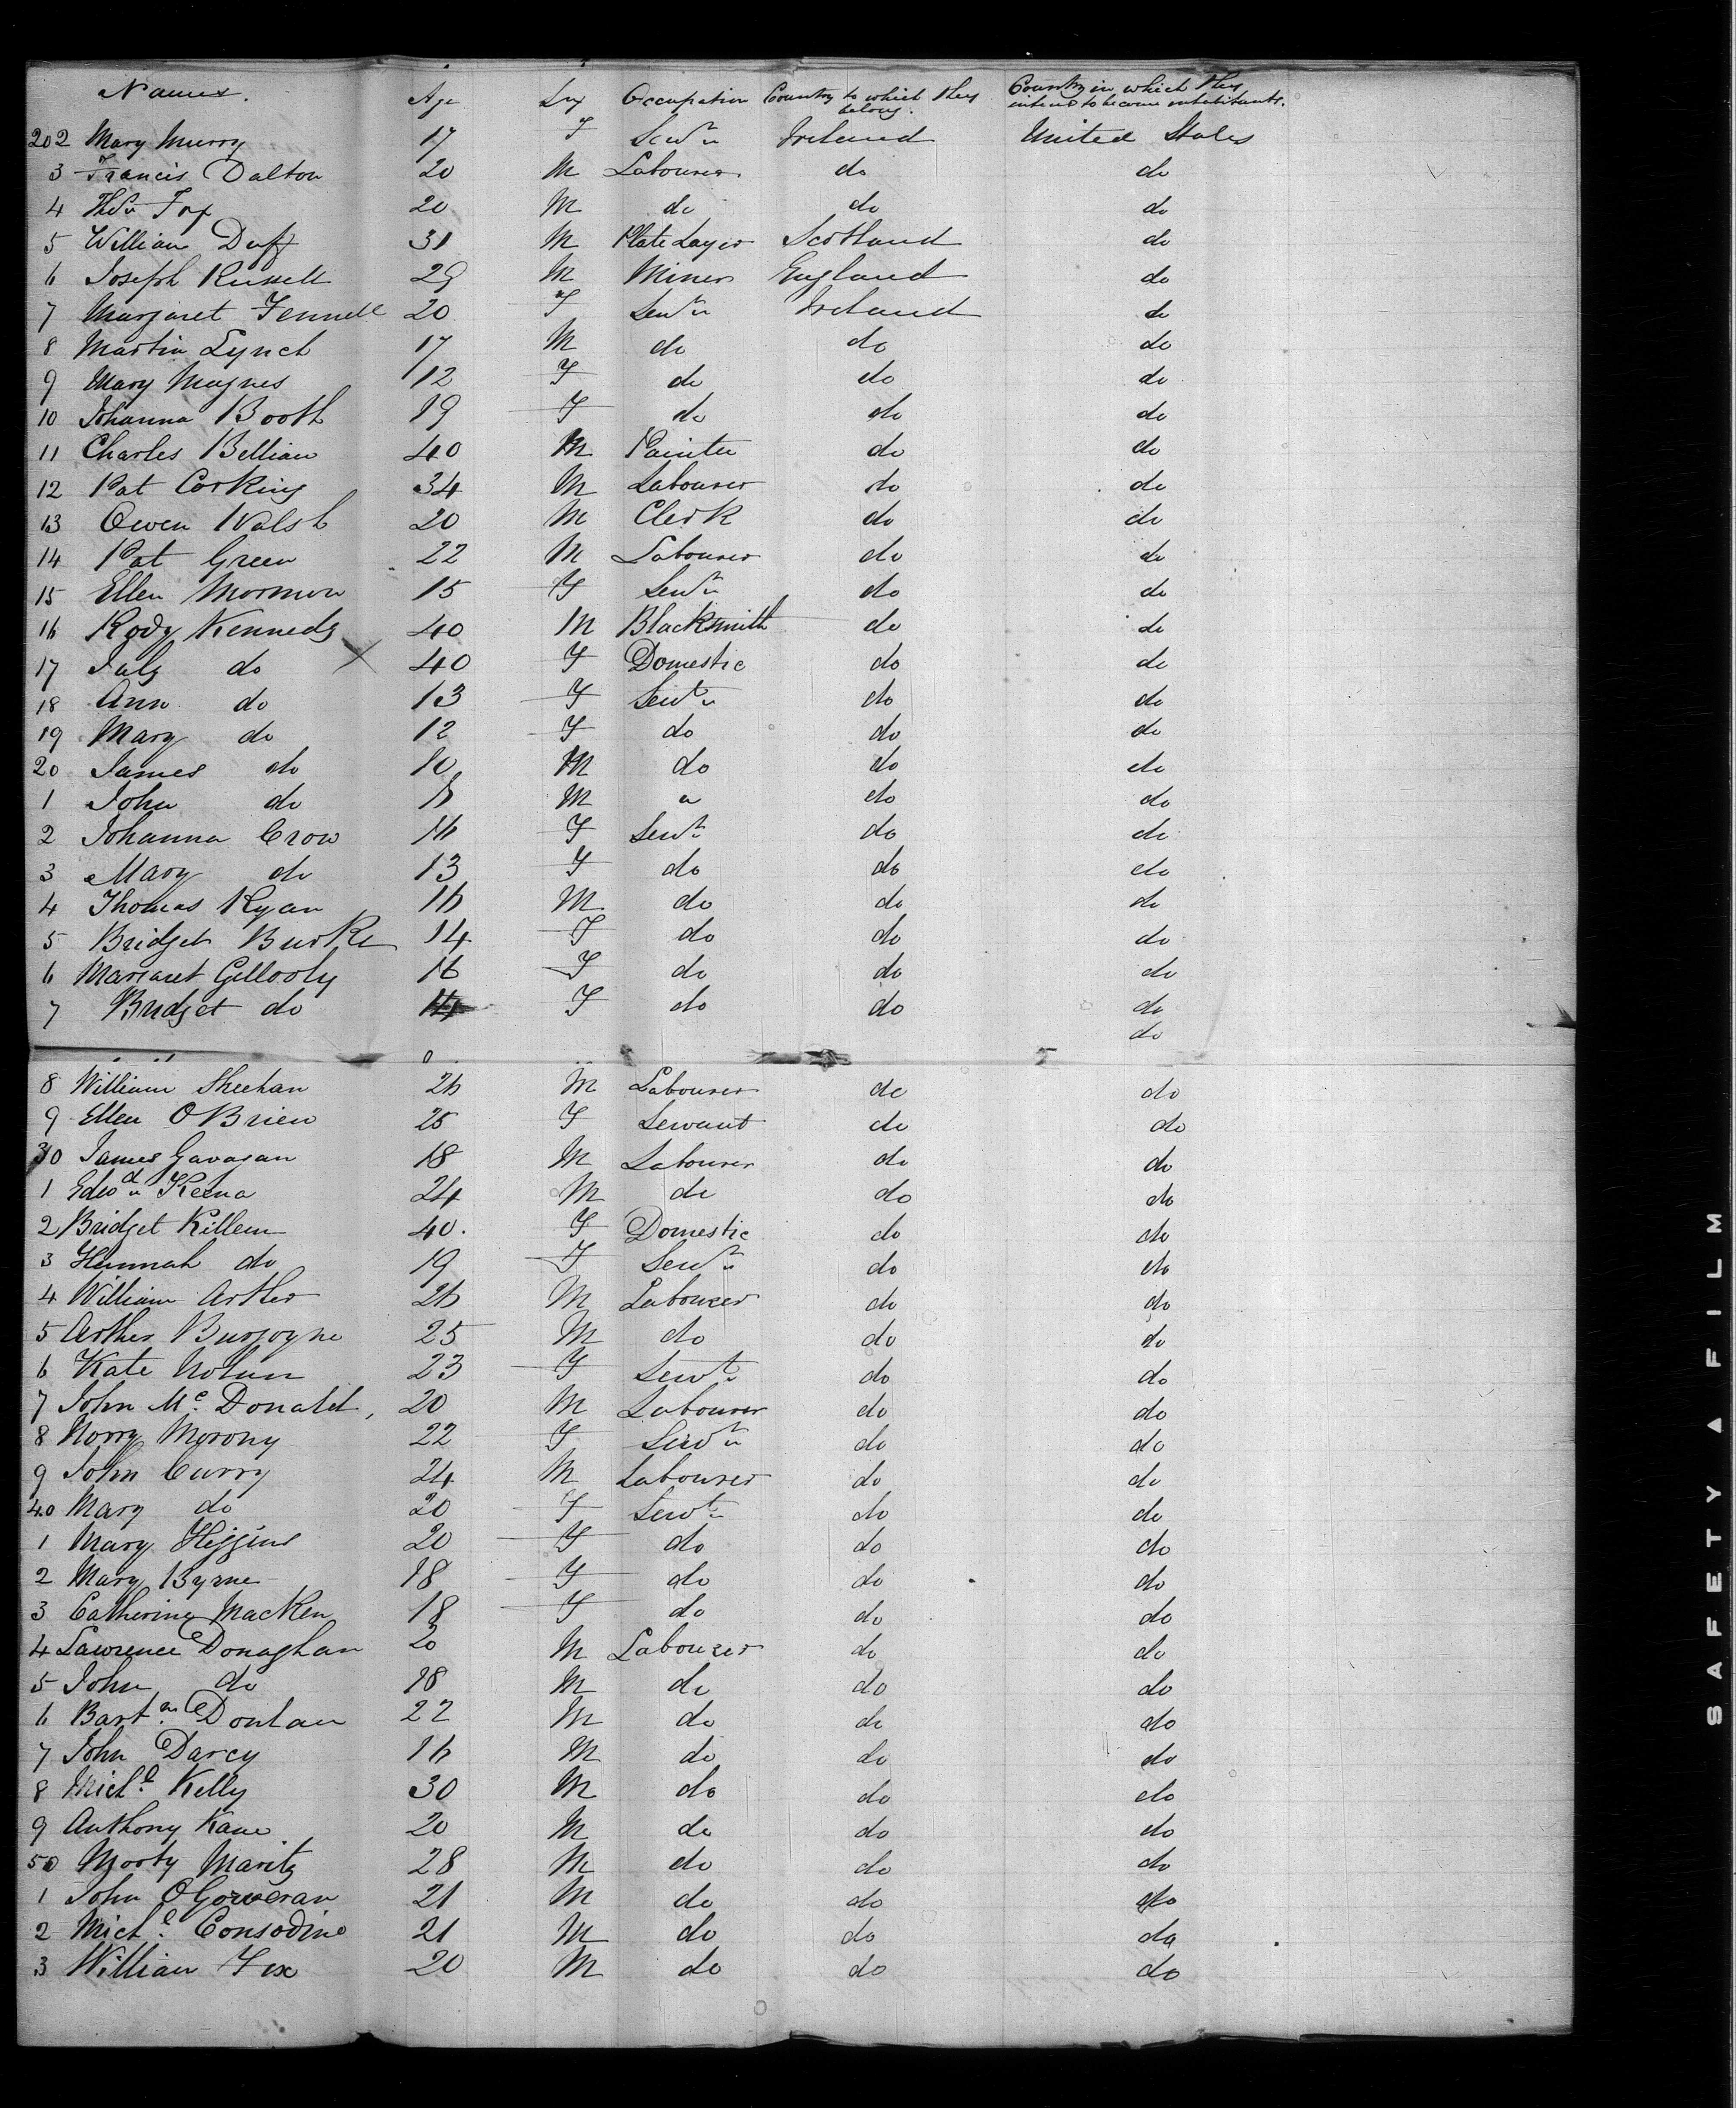 Names. Age Sex Occupation Country to which they belong. Country in which they intend to become inhabitants.
202 Mary Murry 17 F Servt Ireland United States
3 Francis Dalton 20 M Labourer do do
4 Thos Fox 20 M do do do
5 William Duff 31 M Plate Layer Scotland do
6 Joseph Russell 29 M Miner England do
7 Margaret Fennell 20 F Servt Ireland do
8 Martin Lynch 17 M do do do
9 Mary Magnes 12 F do do do
10 Johanna Booth 19 F do do do
11 Charles Bellian 40 M Painter do do
12 Pat Corking 34 M Labourer do do
13 Owen Walsh 20 M Clerk do do
14 Pat Green 22 M Labourer do do
15 Ellen Mormon 15 F Servt do do
16 Rody Kennedy 40 M Blacksmith do do
17 July do 40 F Domestic do do
18 Ann do 13 F Servt do do
19 Mary do 12 F do do do
20 James do 10 M do do do
1 John do 8 M " do do
2 Johanna Crow 16 F Servt do do
3 Mary do 13 F do do do
4 Thomas Ryan 16 M do do do
5 Bridget Burke 14 F do do do
6 Margaret Gillooly 16 F do do do
7 Bridget do 14 F do do do
do
8 William Sheehan 26 M Labourer do do
9 Ellen O Brien 25 F Servant do do
30 James Gavagan 18 M Labourer do do
1 Edwd Keena 24 M do do do
2 Bridget Killem 40. F Domestic do do
3 Hannah do 19 F Servt do do
4 William Arther 26 M Labourer do do
5 Arther Burgoyne 25 M do do do
6 Kate Nolan 23 F Servt do do
7 John Mc Donald, 20 M Labourer do do
8 Norry Morony 22 F Servt do do
9 John Curry 24 M Labourer do do
40 Mary do 20 F Servt do do
1 Mary Higgins 20 F do do do
2 Mary Byrne 18 F do do do
3 Catherine Macken 18 F do do do
4 Lawrence Donaghan 20 M Labourer do do
5 John do 18 M do do do
6 Bartw Donlan 22 M do do do
7 John Darcy 16 M do do do
8 Michl Kelly 30 M do do do
9 Anthony Kane 20 M do do do
50 Morty Maritz 28 M do do do
1 John O Gorveran 21 M do do do
2 Michl Consodine 21 M do do do
3 William Fox 20 M do do do
SAFETY FILM